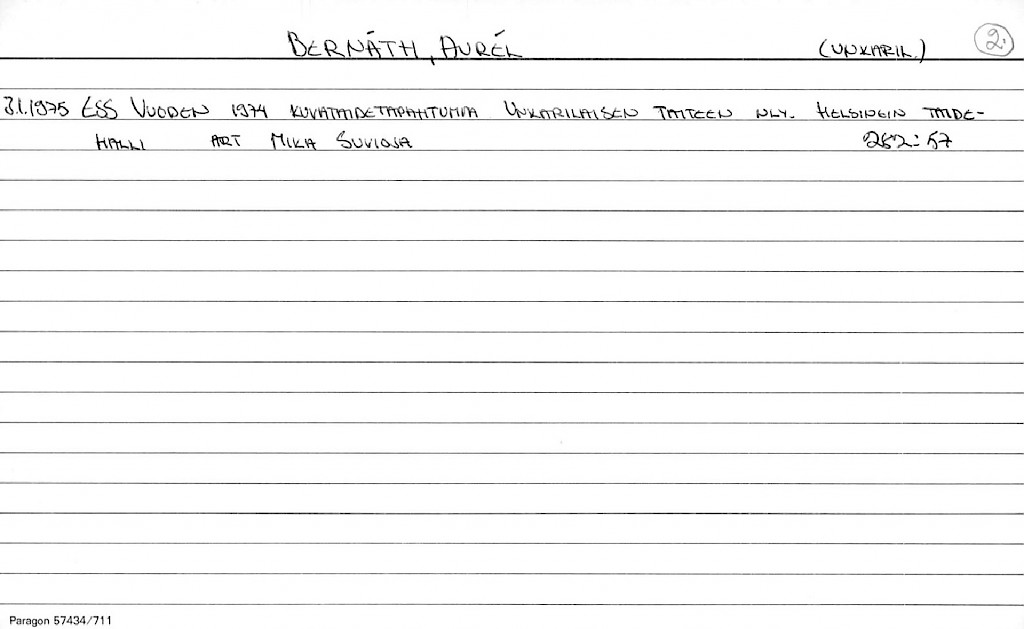 BERNÁTH, AURÉL (UNKARIL.) 2.
3.1.1975 ESS VUODEN 1974 KUVATAIDETAPAHTUMIA UNKARILAISEN TAITEEN NLY. HELSINGIN TAIDE-
HALLI ART MIKA SUVIOJA 262:57
Paragon 57434/711